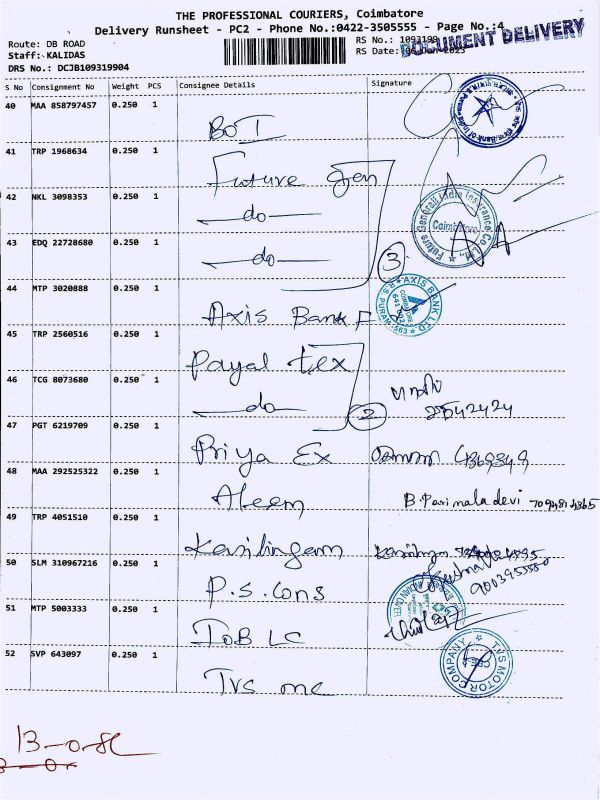 THE PROFESSIONAL COURIERS, Coimbatore
Delivery Runsheet - PC2 - Phone No.:0422-3505555 - Page No.:4
DOCUMENT DELIVERY
Route: DB ROAD
RS No.:
Staff: KALIDAS
RS Date:
DRS No.: DCJB109319904
S No Consignment No Weight PCS Consignee Details Signature
40 MAA 858797457 0.250 1
BOI
41 TRP 1968634 0.250 1
Future Gen
42 NKL 3098353 0.250 1
do
43 EDQ 22728680 0.250 1
do
3
Future Generali India Insurance Co Ltd.,
Coimbatore
44 MTP 3020888 0.250 1
Axis Bank F
AXIS BANK LTD
COIMBATORE
641 002
R.S. PURAM-563
45 TRP 2560516 0.250 1
Payal tex
46 TCG 8073680 0.250 1
do
2
2542424
47 PGT 6219709 0.250 1
Priya Ex
48 MAA 292525322 0.250 1
Aleem
B. Parimala devi
49 TRP 4051510 0.250 1
Kasilingam
50 SLM 310967216 0.250 1
P.S. Cons
51 MTP 5003333 0.250 1
IOB LC
52 SVP 643097 0.250 1
TVS mc
TVS MOTOR COMPANY
CBE-2
13-0-